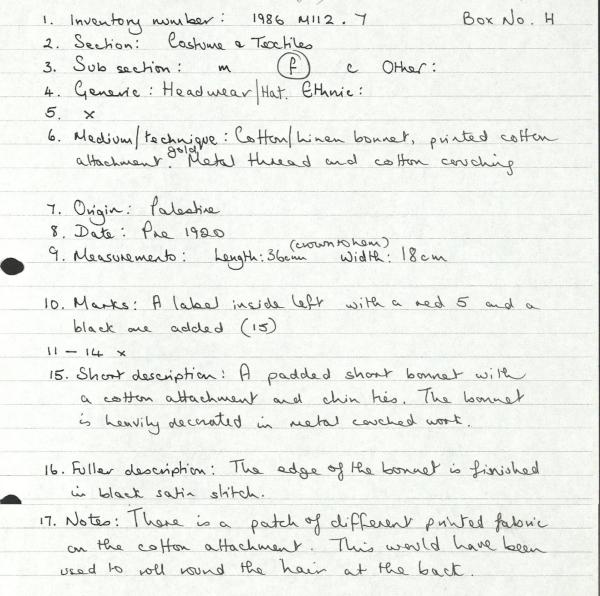 1. Inventory number: 1986 M112.7 Box No. H
2. Section: Costume & Textiles
3. Sub section: m f c Other:
4. Generic: Headwear/Hat. Ethnic:
5. x
6. Medium/technique: Cotton/linen bonnet, printed cotton
attachment. gold Metal thread and cotton couching
7. Origin: Palestine
8. Date: Pre 1920
9. Measurements: Length: 36cm (crown to hem) Width: 18cm
10. Marks: A label inside left with a red 5 and a
black one added (15)
11 - 14 x
15. Short description: A padded short bonnet with
a cotton attachment and chin ties. The bonnet
is heavily decorated in metal couched work.
16. Fuller description: The edge of the bonnet is finished
in black satin stitch.
17. Notes: There is a patch of different printed fabric
on the cotton attachment. This would have been
used to roll round the hair at the back.